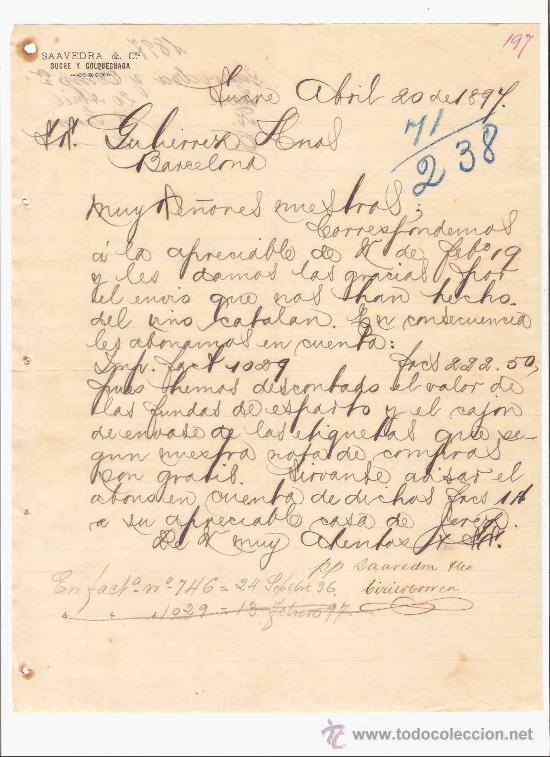 197
SAAVEDRA & Cª
SUCRE Y COLQUECHACA
Sucre Abril 20 de 1897.
71
238
Sr. Sr. Gutierrez Hnos
Barcelona
Muy Señores nuestros;
Correspondemos
á la apreciable de V de Febº 19
y les damos las gracias por
el envio que nos han hecho
del vino catalan. En consecuencia
les abonamos en cuenta:
Imp. fact 1029 frcs 222.50,
pues hemos descontado el valor de
las fundas de esparto y el cajon
de envase de las etiquetas que se-
gun nuestra nota de compras
son gratis. Sirvanse avisar el
abono en cuenta de dichos frcs 11
a su apreciable casa de Jerez.
De V muy Atentos y SS.
pp Saavedra &Co
En factª nº 746 = 24 Sepbre 96.
" " 1029 = 13 Febrero 97.
todocoleccion
www.todocoleccion.net